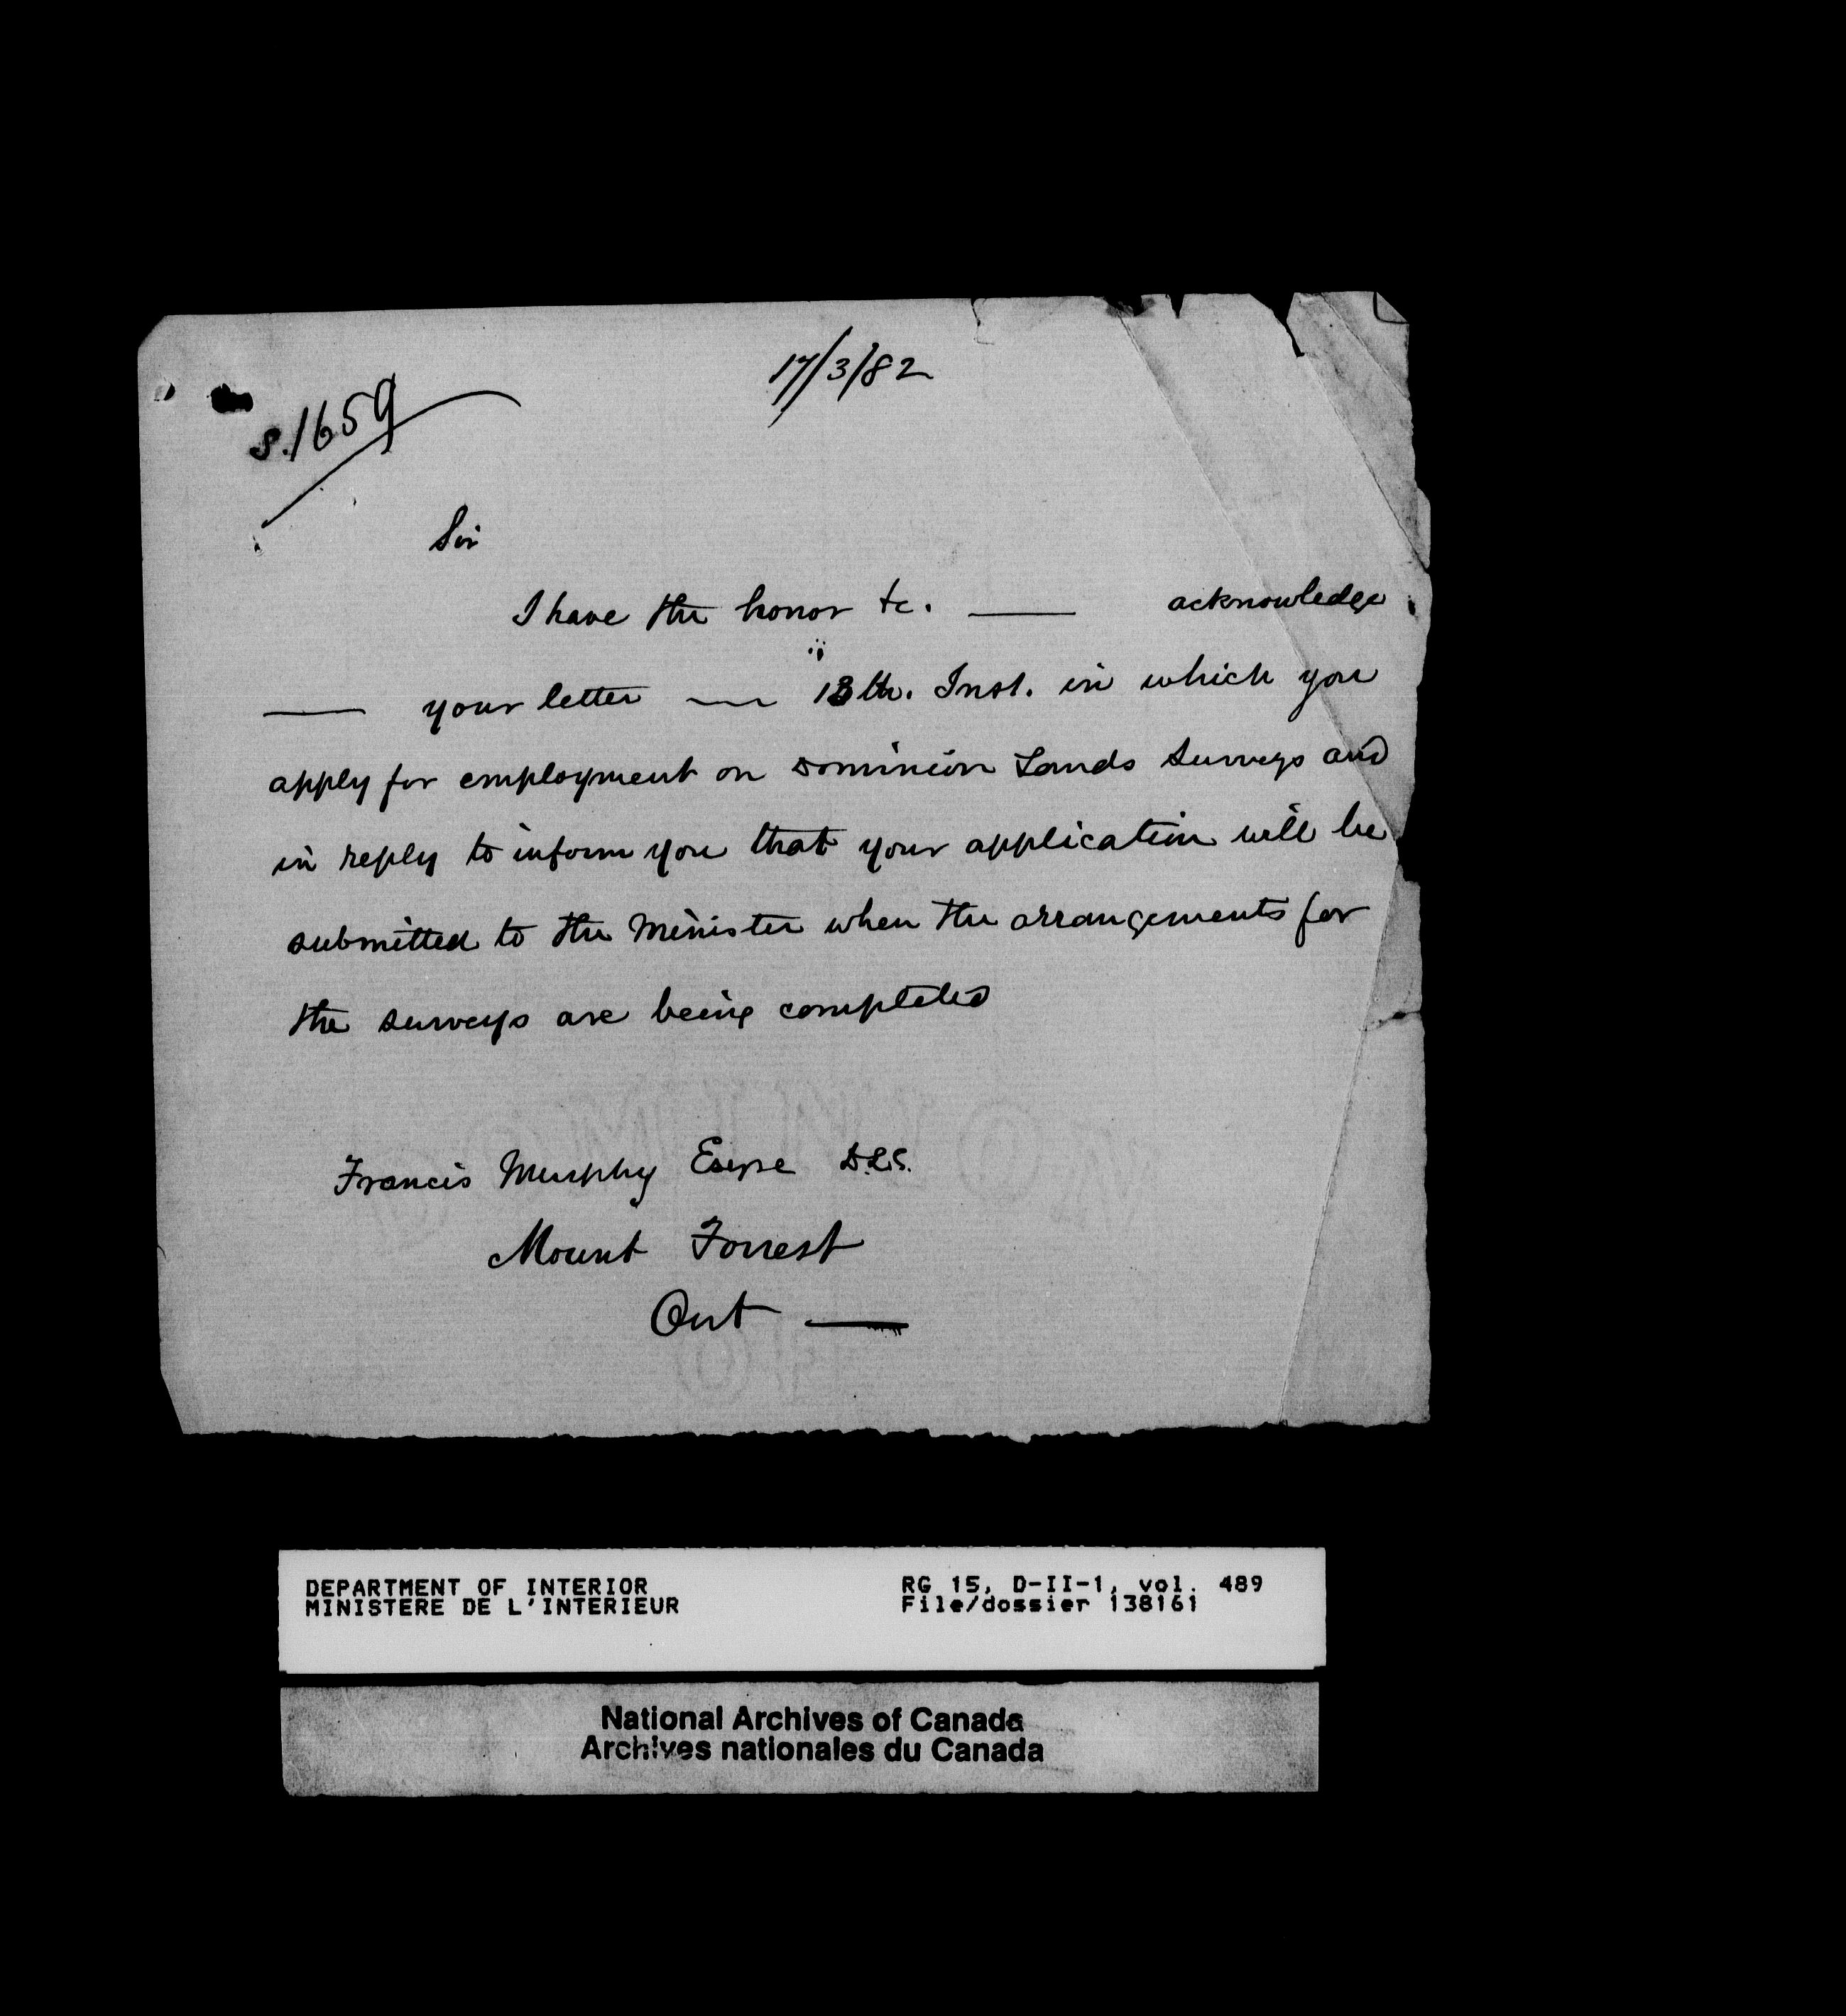 17/3/82
S.1659
Sir
I have the honor &c. —— acknowledge
—— your letter —— 13th. Inst. in which you
apply for employment on Dominion Lands Surveys and
in reply to inform you that your application will be
submitted to the Minister when the arrangements for
the surveys are being completed
Francis Murphy Esqre D.L.S.
Mount Forrest
Ont ——
DEPARTMENT OF INTERIOR
MINISTERE DE L'INTERIEUR
RG 15, D-II-1, vol. 489
File/dossier 138161
National Archives of Canada
Archives nationales du Canada